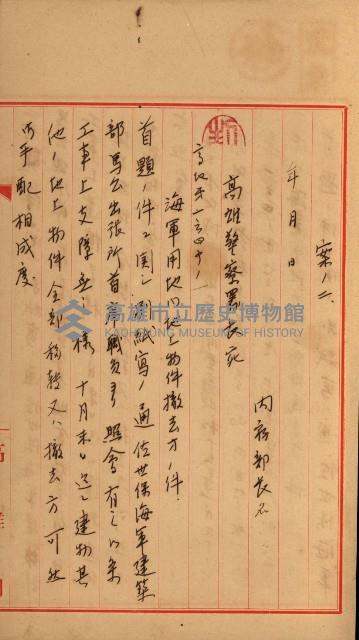 案ノ二
年 月 日
内務部長名
高雄警察署長宛
高地第一六四号ノ一
海軍用地内地上物件撤去方ノ件
首題ノ件ニ関シ別紙写ノ通佐世保海軍建築
部馬公出張所首席部員ヨリ照会有之候条
工事上支障無之様十月末日迄ニ建物其
他ノ地上物件全部移転又ハ撤去方可然
御手配相成度
高雄市立歷史博物館
KAOHSIUNG MUSEUM OF HISTORY
高雄州